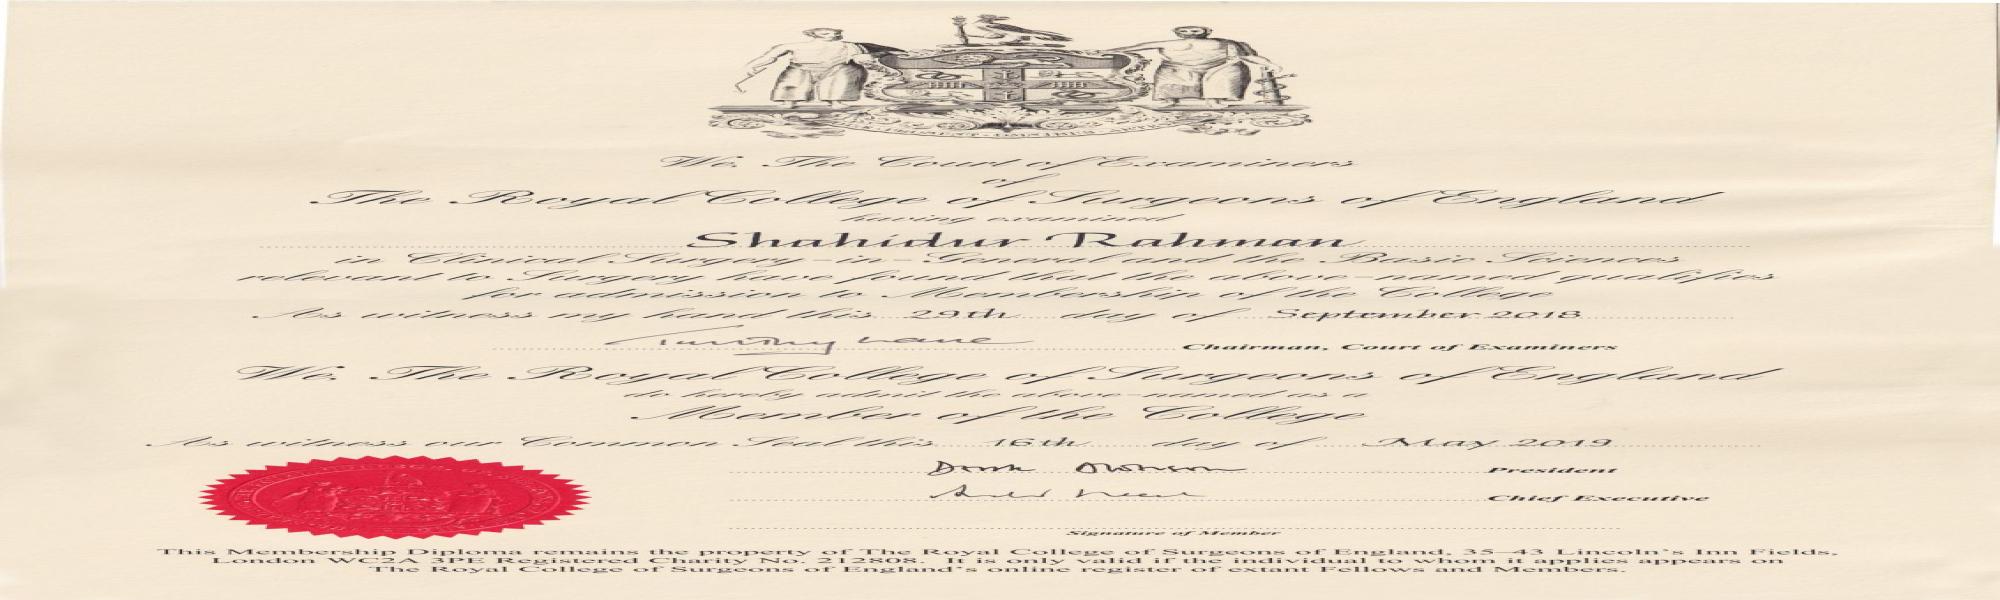 We, The Court of Examiners
of
The Royal College of Surgeons of England
having examined
Shahidur Rahman
in Clinical Surgery-in-General and the Basic Sciences
relevant to Surgery have found that the above-named qualifies
for admission to Membership of the College
As witness my hand this 29th day of September 2018
Chairman, Court of Examiners
We, The Royal College of Surgeons of England
do hereby admit the above-named as a
Member of the College
As witness our Common Seal this 16th day of May 2019
President
Chief Executive
Signature of Member
This Membership Diploma remains the property of The Royal College of Surgeons of England, 35-43 Lincoln's Inn Fields,
London WC2A 3PE Registered Charity No. 212808. It is only valid if the individual to whom it applies appears on
The Royal College of Surgeons of England's online register of extant Fellows and Members.